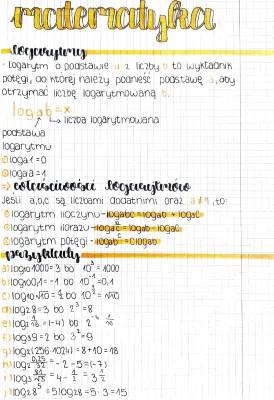 matematyka
logarytmy
- logarytm o podstawie a z liczby b to wykładnik
potęgi, do której należy podnieść podstawę a, aby
otrzymać liczbę logarytmowaną b.
logab = x
liczba logarytmowana
podstawa
logarytmu
loga1 = 0
logaa = 1
=> właściwości logarytmów
Jeśli a,b,c są liczbami dodatnimi oraz a≠1, to:
logarytm iloczynu - logabc = logab + logac
logarytm ilorazu - loga b/c = logab - logac
logarytm potęgi - logab^c = clogab
przykłady
a) log1000 = 3 bo 10³ = 1000
b) log0,1 = -1 bo 10⁻¹ = 0,1
c) log√10 = ½ bo 10^½ = √10
d) log28 = 3 bo 2³ = 8
e) log2 1/16 = (-4) bo 2⁻⁴ 1/16
f) log39 = 2 bo 3² = 9
g) log2(256·1024) = 8+10 = 18
h) log2 0,25/32 = -2-5 = (-7)
i) log3 81/√3 = 4 - ½ = 3½
j) log28⁵ = 5log28 = 5·3 = 15